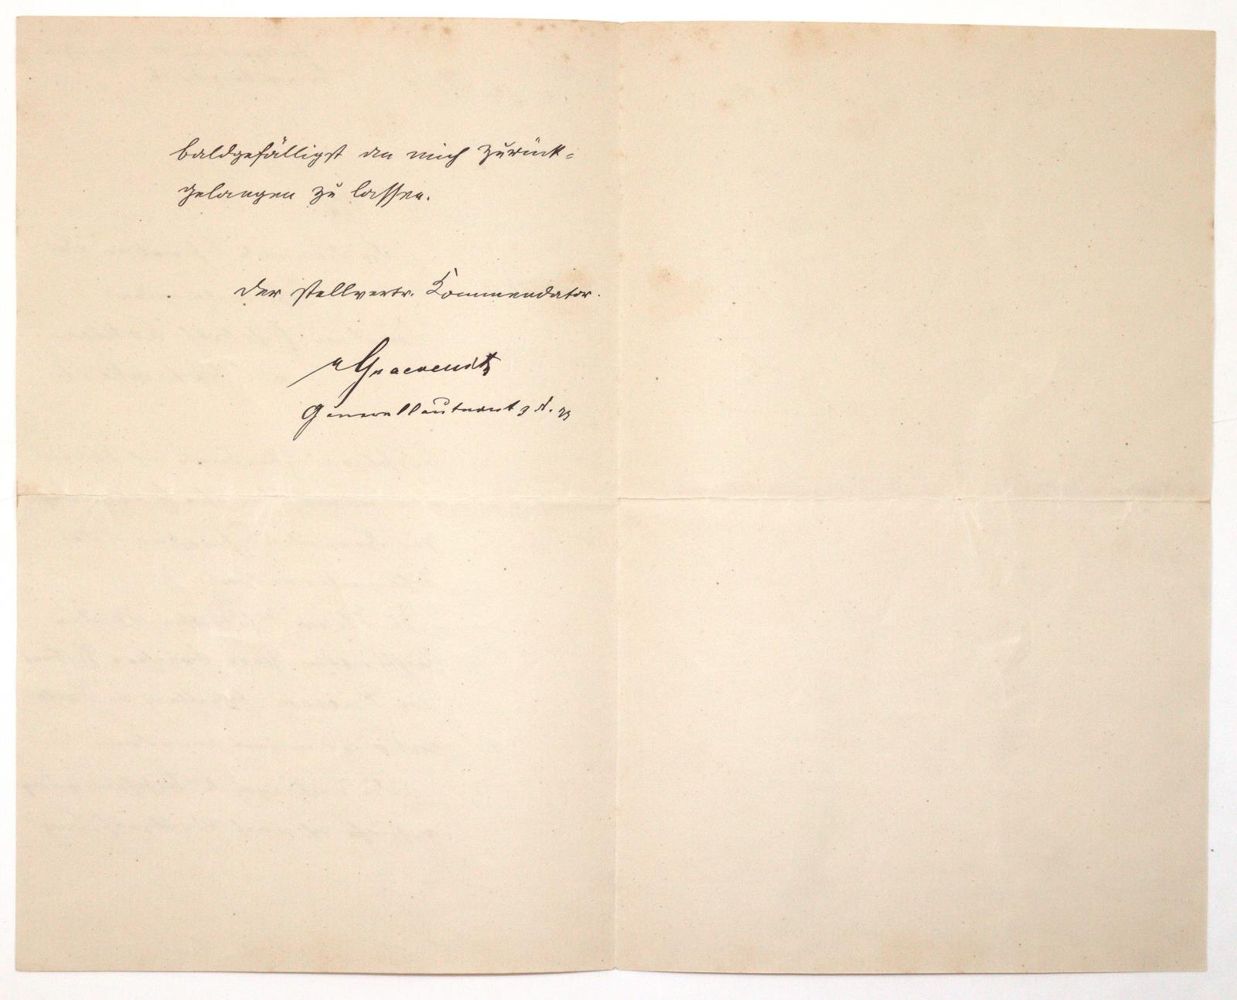 baldgefälligst an mich zurück-
gelangen zu lassen.
Der stellvertr. Kommendator.
v
Generallieutenant z. D.